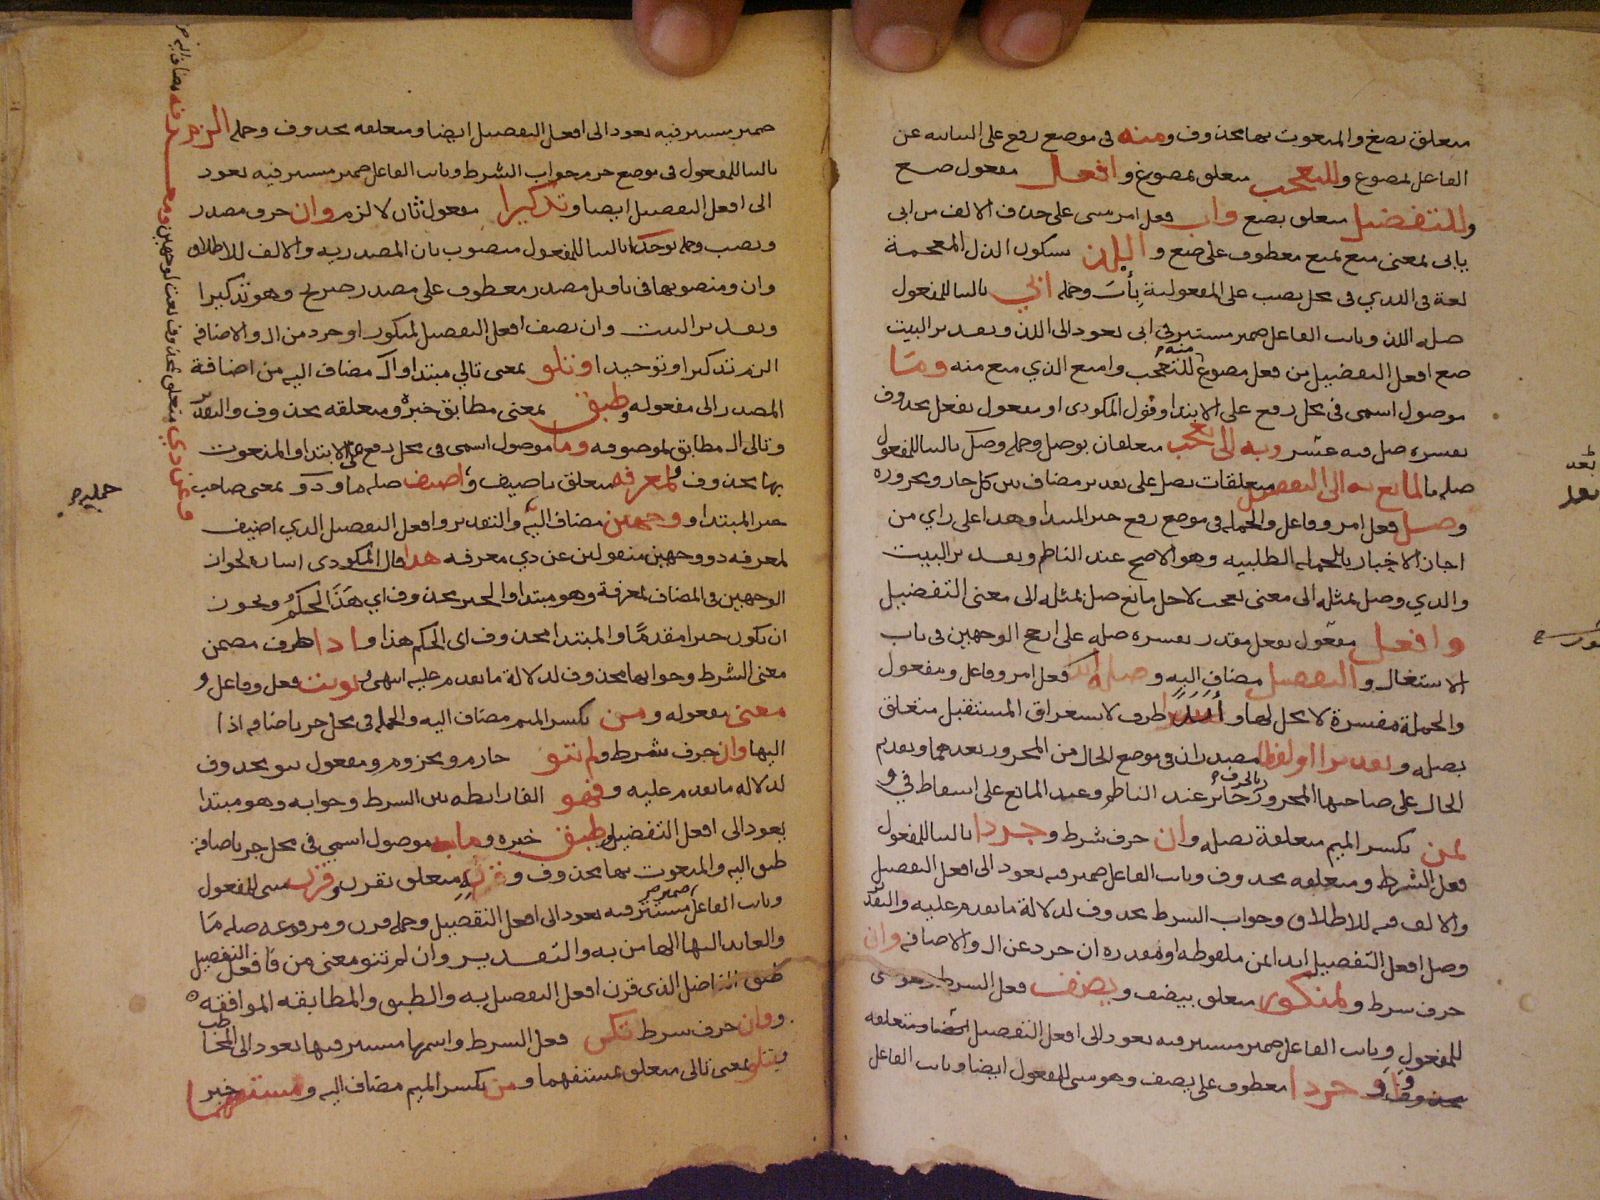 متعلق بصغ والمنعوت بها محذوف ومنه في موضع رفع على النيابة عن
الفاعل لمصوغ وللتعجب متعلق بمصوغ وافعل مفعول صغ
وللتفضيل متعلق بصغ واب فعل امر مبني على حذف الالف من ابى
يابى بمعنى منع يمنع معطوف على صغ واللذ بسكون الذال المعجمة
لغة في الذي في محل نصب على المفعولية بأب وجملة ابي بالبنا للمفعول
صلة اللذ ونايب الفاعل ضمير مستتر في ابي يعود الى اللذ وتقدير البيت
صغ افعل التفضيل من فعل مصوغ منه للتعجب وامنع الذي منع منه وما
موصول اسمي في محل رفع على الابتدا وقول المكودي او مفعول بفعل محذوف
يفسره صل فيه عسر وبه الى تعجب متعلقان بوصل وجملة وصل بالبنا للمفعول
صلة ما لمانع به الى التفضيل متعلقات بصل على تقدير مضاف بين كل جار ومجروره
وصل فعل امر وفاعل والجملة في موضع رفع خبر المبتدا وهذا على راي من
اجاز الاخبار بالجملة الطلبية وهو الاصح عند الناظم وتقدير البيت
والذي وصل بمثله الى معنى تعجب لاجل مانع صل بمثله الى معنى التفضيل
وافعل مفعول بفعل مقدر يفسره صله على ارجح الوجهين في باب
الاشتغال والتفضيل مضاف اليه وصله فعل امر وفاعل ومفعول
والجملة مفسرة لا محل لها وابدا ظرف لاستغراق المستقبل متعلق
بصله وتقديرا او لفظا مصدران في موضع الحال من المجرور بعدهما وتقديم
الحال على صاحبها المجرور بالحرف جائز عند الناظم وعند المانع على اسقاط في و
بمن بكسر الميم متعلقة بصله وان حرف شرط وجردا بالبنا للمفعول
فعل الشرط ومتعلقه محذوف ونايب الفاعل ضمير فيه يعود الى افعل التفضيل
والالف فيه للاطلاق وجواب الشرط محذوف لدلالة ما تقدم عليه والتقدير
وصل افعل التفضيل ابدا بمن ملفوظة او مقدرة ان جرد عن ال والاضافة وان
حرف شرط ولمنكور متعلق بيضف ويضف فعل الشرط
للمفعول ونايب الفاعل ضمير مستتر فيه يعود الى افعل التفضيل ايضا ومتعلقه
محذوف او جردا معطوف على يضف وهو مبني للمفعول ايضا ونايب الفاعل
ضمير مستتر فيه يعود الى افعل التفضيل ايضا ومتعلقه محذوف وجملة الزم
بالبنا للمفعول في موضع جزم جواب الشرط ونايب الفاعل ضمير مستتر فيه يعود
الى افعل التفضيل ايضا وتذكيرا مفعول ثان لالزم وان حرف مصدر
ونصب وجملة يوحدا بالبنا للمفعول منصوب بان المصدرية والالف للاطلاق
وان ومنصوبها في تاويل مصدر معطوف على مصدر صريح وهو تذكيرا
وتقدير البيت وان يضف افعل التفضيل لمنكور او جرد من ال والاضافة
الزم تذكيرا وتوحيدا وتلو بمعنى تالي مبتدا وال مضاف اليه من اضافة
المصدر الى مفعوله وطبق بمعنى مطابق خبره ومتعلقه محذوف والتقدير
وتالي ال مطابق لموصوفه وما موصول اسمي في محل رفع على الابتدا والمنعوت
بها محذوف ولمعرفه متعلق باضيف واضيف صلة ما وذو بمعنى صاحب
خبر المبتدا ووجهين مضاف اليه والتقدير وافعل التفضيل الذي اضيف
لمعرفه ذو وجهين منقولين عن ذي معرفه هذا قال المكودي اشارة لجواز
الوجهين في المضاف لمعرفة وهو مبتدا والخبر محذوف اي هذا الحكم ويجوز
ان يكون خبرا مقدما والمبتدا محذوف اي الحكم هذا واذا ظرف مضمن
معنى الشرط وجوابها محذوف لدلالة ما تقدم عليه انتهى ونويت فعل وفاعل و
معنى مفعوله ومن بكسر الميم مضاف اليه والجملة في محل جر باضافة اذا
اليها وان حرف شرط ولم تنو جازم ومجزوم ومفعول تنو محذوف
لدلالة ما تقدم عليه وفهو الفا رابطة بين الشرط وجوابه وهو مبتدا
يعود الى افعل التفضيل وطبق خبره وما به موصول اسمي في محل جر باضافة
طبق اليه والمنعوت بها محذوف وبه متعلق بقرن وقرن مبني للمفعول
ونايب الفاعل ضمير مستتر فيه يعود الى افعل التفضيل وجملة قرن ومرفوعه صلة ما
والعايد اليها الها من به والتقدير وان لم تنو معنى من فافعل التفضيل
طبق الفاضل الذي قرن افعل التفضيل به والطبق والمطابقة الموافقه
وان حرف شرط تكن فعل الشرط واسمها مستتر فيها يعود الى المخاطب
وبتلو بمعنى تالي متعلق بمستفهما ومن بكسر الميم مضاف اليه ومستفهما خبر